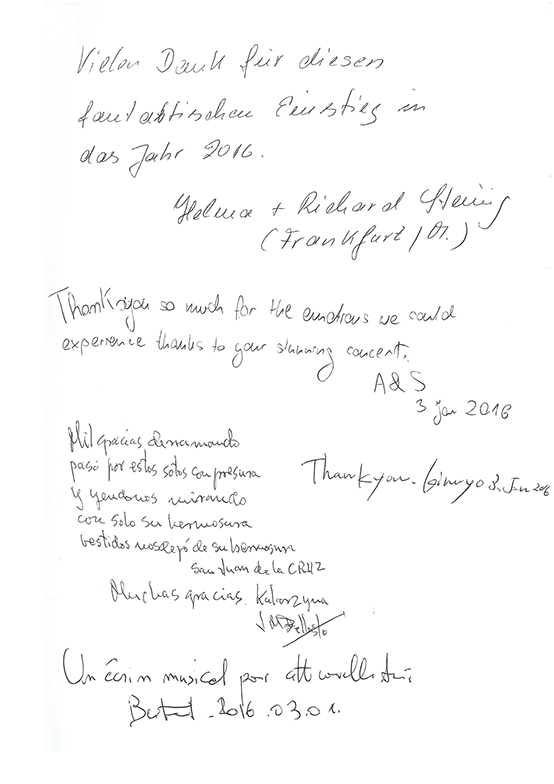 Vielen Dank für diesen
fantastischen Einstieg in
das Jahr 2016.
Helma + Richard
(Frankfurt / M.)
Thank you so much for the emotions we could
experience thanks to your stunning concert.
A & S
3 Jan 2016
Mil gracias derramando
pasó por estos sotos con presura
Thank you. 3. Jan 2016
y yendonos mirando
con solo su hermosura
vestidos nos dejó de su hermosura
San Juan de la CRUZ
Muchas gracias. Katarzyna
Un écrin musical pour
2016.03.01.